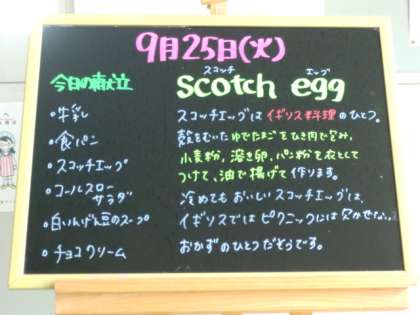 9月25日(火)
今日の献立
・牛乳
・食パン
・スコッチエッグ
・コールスロー
サラダ
・白いんげん豆のスープ
・チョコクリーム
スコッチ エッグ
scotch egg
スコッチエッグは イギリス料理のひとつ。
殻をむいた ゆでたまごをひき肉で包み、
小麦粉、溶き卵、パン粉を衣として
つけて、油で揚げて 作ります。
冷めても おいしい スコッチエッグは、
イギリスでは ピクニックには 欠かせない。
おかずのひとつだそうです。